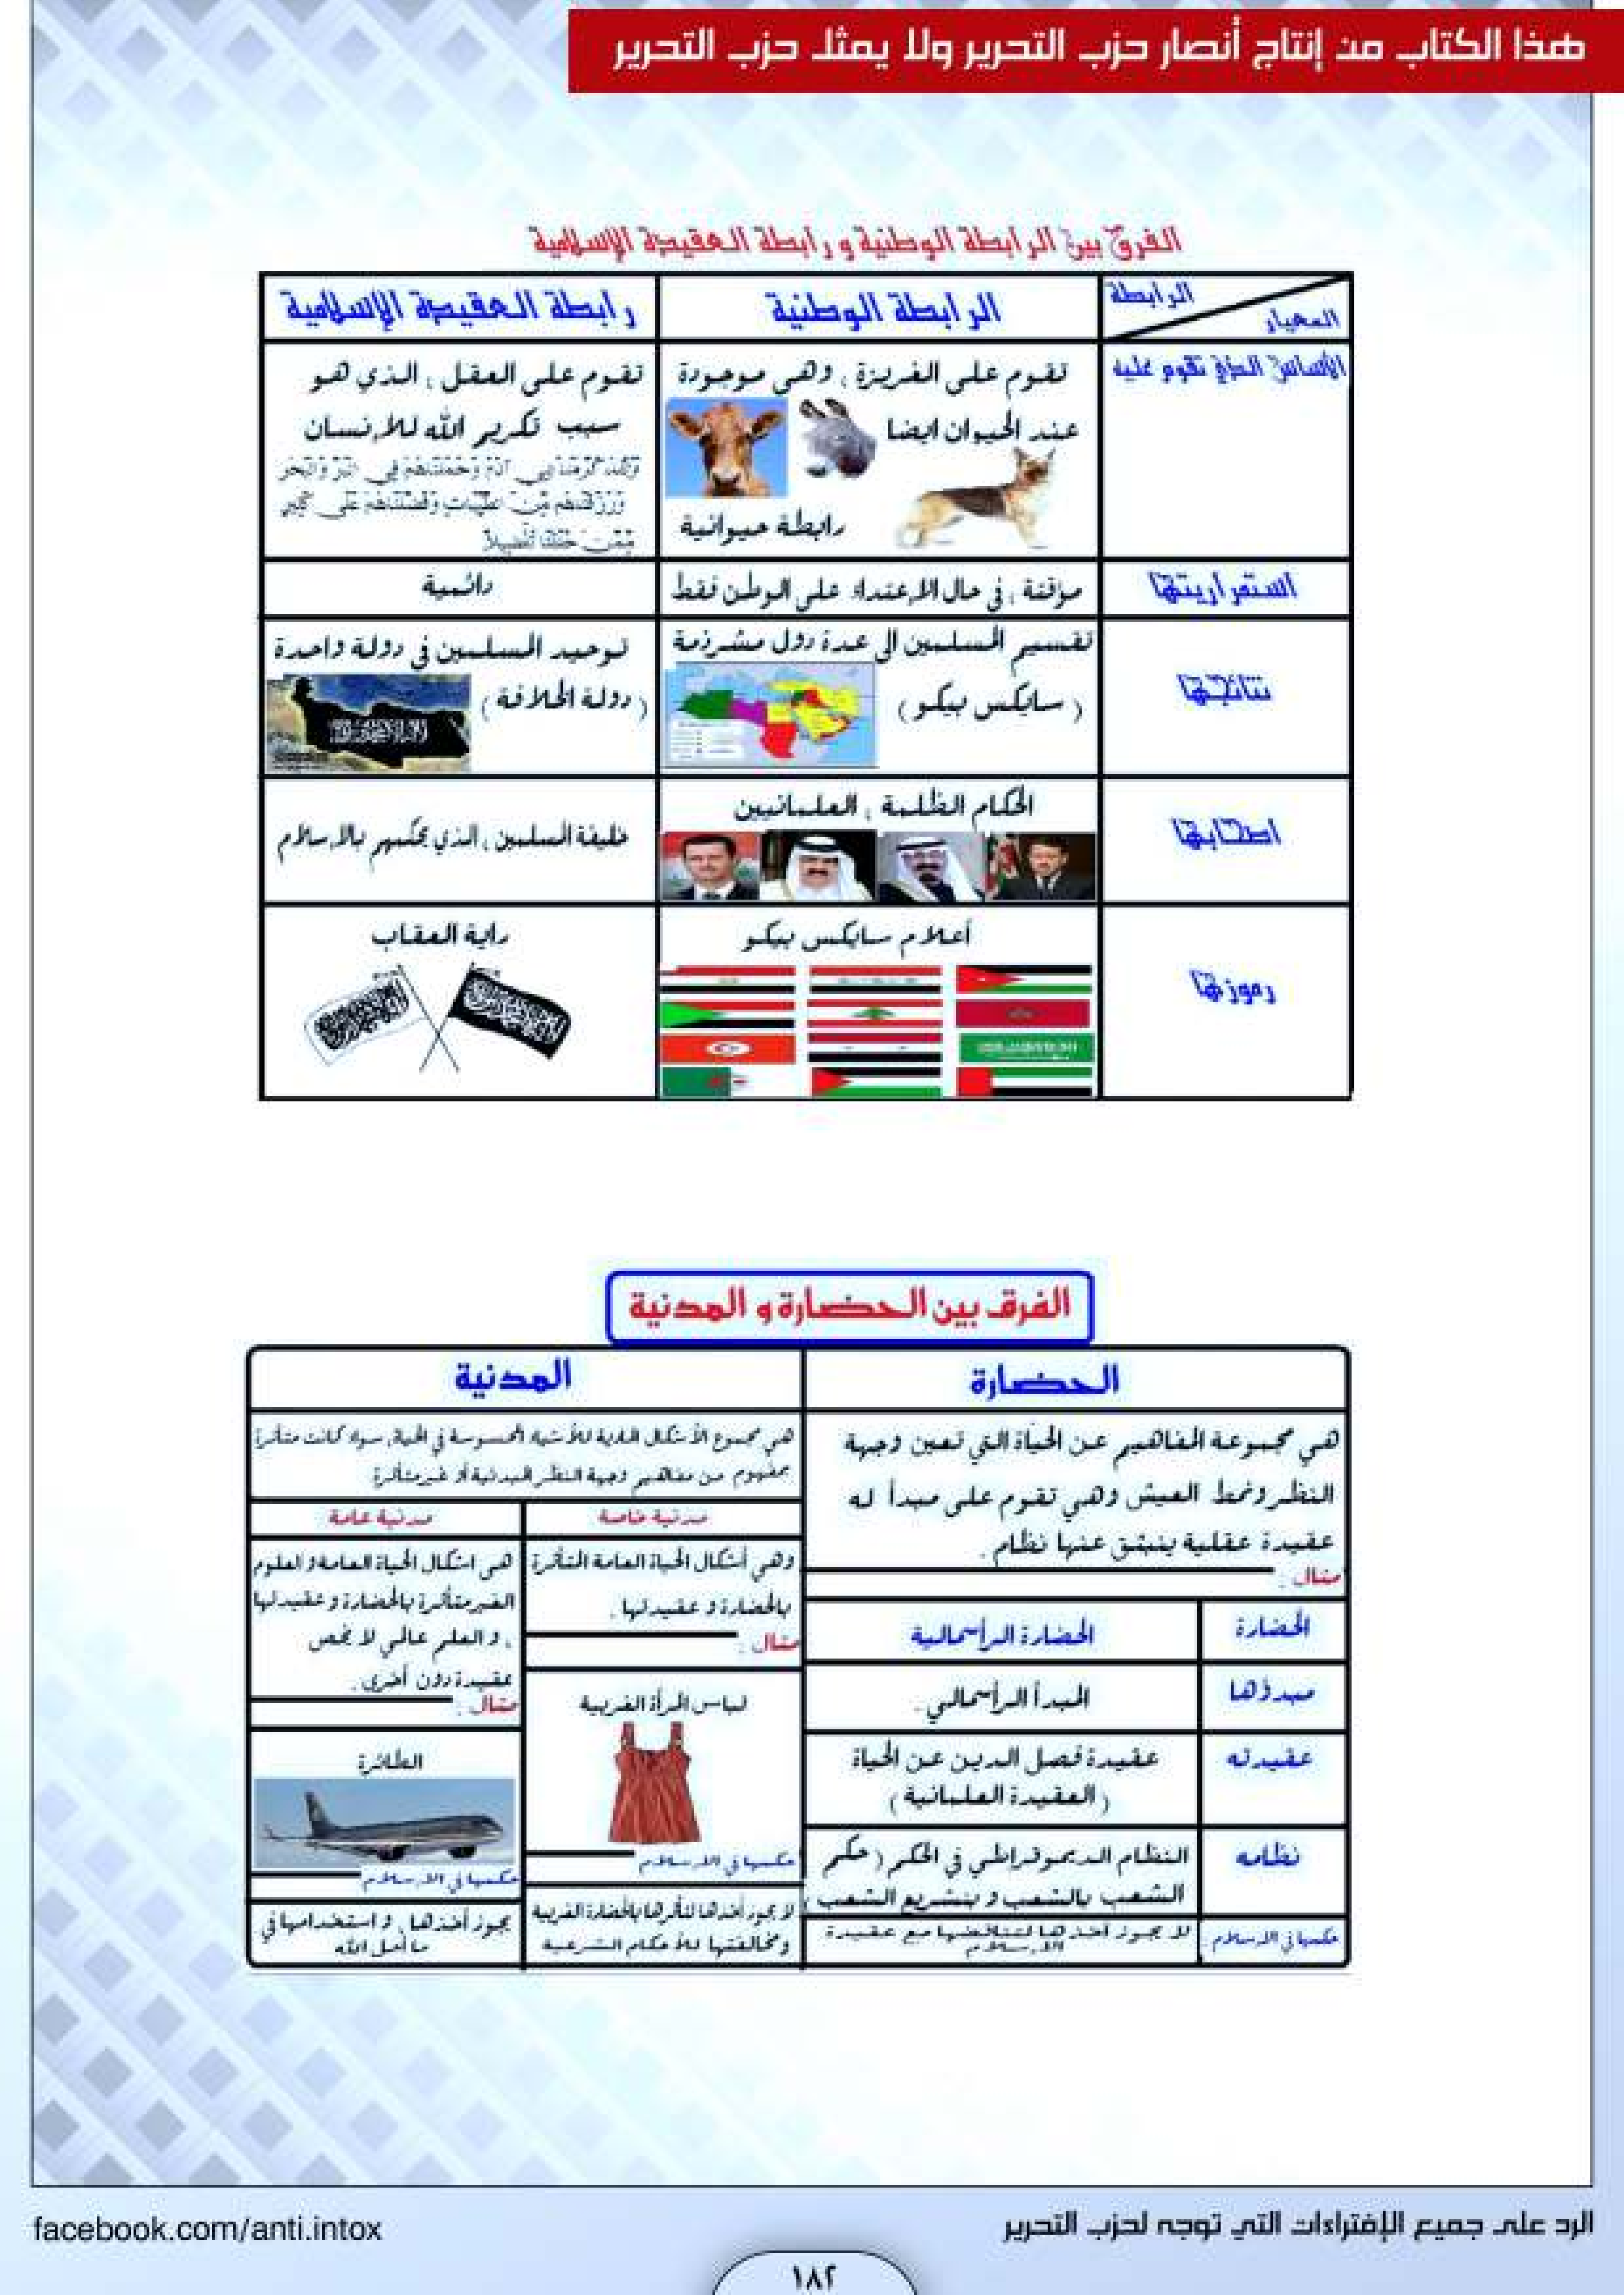 هذا الكتاب من إنتاج أنصار حزب التحرير ولا يمثل حزب التحرير
الفرق بين الرابطة الوطنية و رابطة العقيدة الإسلامية
الرابطة
المعيار
الرابطة الوطنية
رابطة العقيدة الإسلامية
الأساس الذي تقوم عليه
تقوم على الغريزة ، وهي موجودة
عند الحيوان ايضا
رابطة حيوانية
تقوم على العقل ، الذي هو
سبب تكريم الله للإنسان
وَلَقَدْ كَرَّمْنَا بَنِي آدَمَ وَحَمَلْنَاهُمْ فِي الْبَرِّ وَالْبَحْرِ
وَرَزَقْنَاهُم مِّنَ الطَّيِّبَاتِ وَفَضَّلْنَاهُمْ عَلَى كَثِيرٍ
مِّمَّنْ خَلَقْنَا تَفْضِيلاً
استمراريتها
مؤقتة ، في حال الإعتداء على الوطن فقط
دائمية
نتائجها
تقسيم المسلمين الى عدة دول مشرذمة
( سايكس بيكو )
توحيد المسلمين في دولة واحدة
( دولة الخلافة )
اصحابها
الحكام الظلمة ، العلمانيين
خليفة المسلمين ، الذي يحكمهم بالإسلام
رموزها
أعلام سايكس بيكو
راية العقاب
الفرق بين الحضارة و المدنية
الحضارة
المدنية
هي مجموعة المفاهيم عن الحياة التي تعين وجهة
النظر ونمط العيش وهي تقوم على مبدأ له
عقيدة عقلية ينبثق عنها نظام .
مثال :
الحضارة
الحضارة الرأسمالية
مبدؤها
المبدأ الرأسمالي .
عقيدته
عقيدة فصل الدين عن الحياة
( العقيدة العلمانية )
نظامه
النظام الديموقراطي في الحكم ( حكم
الشعب بالشعب و بتشريع الشعب )
حكمها في الإسلام
لا يجوز أخذها لتناقضها مع عقيدة
الإسلام
هي مجموع الأشكال المادية للأشياء المحسوسة في الحياة, سواء كانت متأثرة
بمفهوم من مفاهيم وجهة النظر المبدئية أو غير متأثرة
مدنية خاصة
وهي أشكال الحياة العامة المتأثرة
بالحضارة و عقيدتها .
مثال :
لباس المرأة الغربية
حكمها في الإسلام
لا يجوز أخذها لتأثرها بالحضارة الغربية
ومخالفتها للأحكام الشرعية
مدنية عامة
هي اشكال الحياة العامة و العلوم
الغير متأثرة بالحضارة و عقيدتها
، و العلم عالمي لا يخص
عقيدة دون أخرى .
مثال :
الطائرة
حكمها في الإسلام
يجوز أخذها ، و استخدامها في
ما أحل الله
facebook.com/anti.intox
الرد على جميع الإفتراءات التي توجه لحزب التحرير
١٨٢